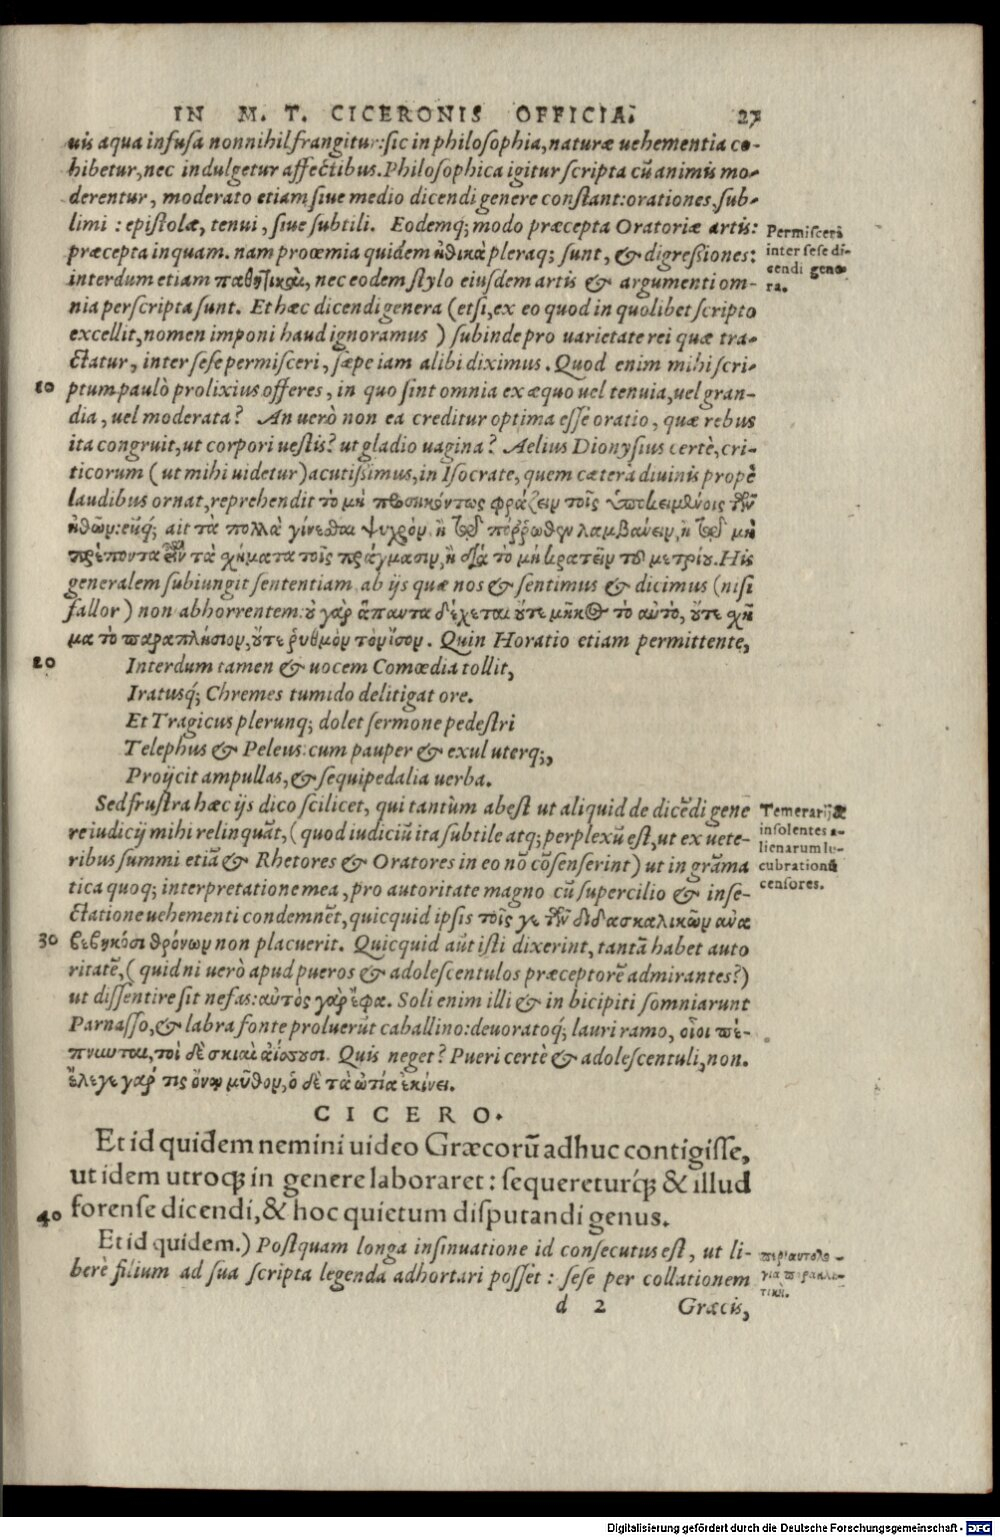 IN M. T. CICERONIS OFFICIA. 27
uis aqua infusa nonnihil frangitur: sic in philosophia, naturæ uehementia co-
hibetur, nec indulgetur affectibus. Philosophica igitur scripta cũ animis mo-
derentur, moderato etiam, siue medio dicendi genere constant: orationes, sub-
limi : epistolæ, tenui, siue subtili. Eodemq; modo præcepta Oratoriæ artis:
Permisceri
præcepta inquam. nam proœmia quidem ἠθικὰ pleraq; sunt, & digreßiones:
inter sese di-
cendi gene-
interdum etiam παθητικαὶ, nec eodem stylo eiusdem artis & argumenti om-
ra.
nia perscripta sunt. Et hæc dicendi genera (etsi, ex eo quod in quolibet scripto
excellit, nomen imponi haud ignoramus ) subinde pro uarietate rei quæ tra-
ctatur, inter sese permisceri, sæpe iam alibi diximus. Quod enim mihi scri-
10 ptum paulò prolixius offeres, in quo sint omnia ex æquo uel tenuia, uel gran-
dia, uel moderata? An uerò non ea creditur optima esse oratio, quæ rebus
ita congruit, ut corpori uestis? ut gladio uagina? Aelius Dionysius certè, cri-
ticorum (ut mihi uidetur) acutißimus, in Isocrate, quem cætera diuinis propè
laudibus ornat, reprehendit τὸ μὴ προσηκόντως φράζειν τοῖς ὑποκειμένοις τῶν
ἠθῶν: eüq́; ait τὰ πολλὰ γίνεσθαι ψυχρὸν, ἢ τῷ πόῤῥωθεν λαμβάνειν, ἢ τῷ μὴ
πρέποντα εἶναι τὰ σχήματα τοῖς πράγμασιν, ἢ διὰ τὸ μὴ κρατεῖν τοῦ μετρίου. His
generalem subiungit sententiam ab ijs quæ nos & sentimus & dicimus (nisi
fallor) non abhorrentem: οὐ γὰρ ἅπαντα δέχεται οὔτε μῆκος τὸ αὐτὸ, οὔτε σχῆ
μα τὸ παραπλήσιον, οὔτε ῥυθμὸν τὸν ἴσον. Quin Horatio etiam permittente,
20 Interdum tamen & uocem Comœdia tollit,
Iratusq́; Chremes tumido delitigat ore.
Et Tragicus plerunq; dolet sermone pedestri
Telephus & Peleus: cum pauper & exul uterq;,
Proijcit ampullas, & sequipedalia uerba.
Sed frustra hæc ijs dico scilicet, qui tantùm abest ut aliquid de dicẽdi gene
Temerarij &
re iudicij mihi relinquãt, ( quod iudiciũ ita subtile atq; perplexũ est, ut ex uete-
insolentes a-
lienarum lu-
ribus summi etiã & Rhetores & Oratores in eo nõ cõsenserint) ut in grãma
cubrationũ
tica quoq; interpretatione mea, pro autoritate magno cũ supercilio & inse-
censores.
ctatione uehementi condemnẽt, quicquid ipsis τοῖς γε τῶν διδασκαλικῶν ἀνα
30 βεβηκόσι θρόνων non placuerit. Quicquid aũt isti dixerint, tantã habet auto
ritatẽ, ( quid ni uerò apud pueros & adolescentulos præceptorẽ admirantes?)
ut dissentire sit nefas: αὐτὸς γὰρ ἔφα. Soli enim illi & in bicipiti somniarunt
Parnasso, & labra fonte proluerũt caballino: deuoratoq́; lauri ramo, οἷοι πέ-
πνυνται, τοὶ δὲ σκιαὶ ἀΐσσουσι. Quis neget? Pueri certè & adolescentuli, non.
ἔλεγε γάρ τις ὄνῳ μῦθον, ὁ δὲ τὰ ὠτία ἐκίνει.
CICERO.
Et id quidem nemini uideo Græcorũ adhuc contigisse,
ut idem utroq; in genere laboraret : sequereturq́; & illud
40 forense dicendi, & hoc quietum disputandi genus.
Et id quidem.) Postquam longa insinuatione id consecutus est, ut li-
περιαυτολο-
berè filium ad sua scripta legenda adhortari posset : sese per collationem
d 2 Græcis,